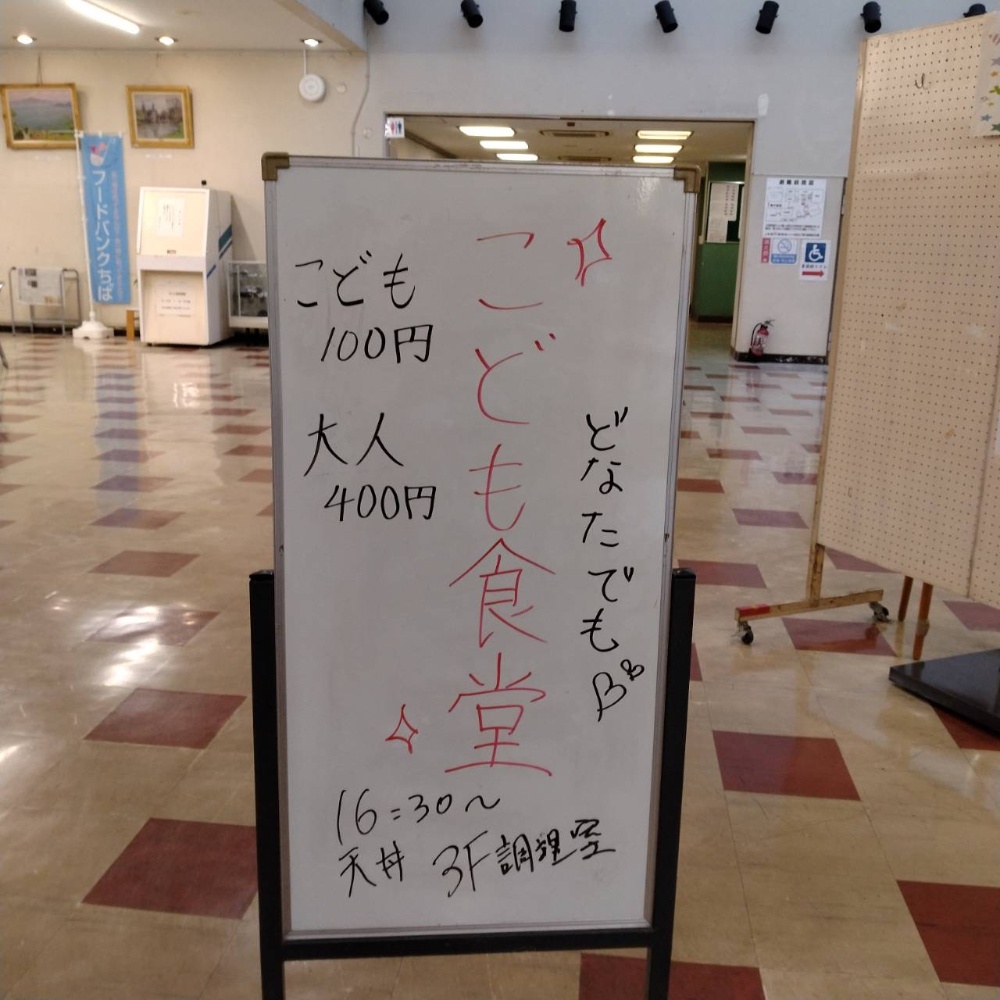 どなたでも
こども食堂
こども
100円
大人
400円
16:30〜
天丼 3F調理室
フードバンクちば